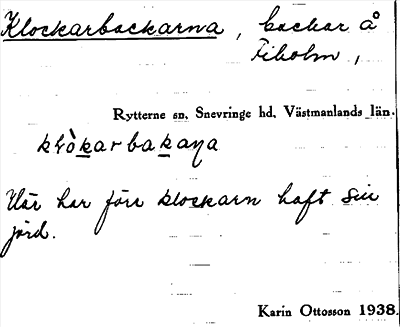 Klockarbackarna, backar å
Fiholm,
Rytterne sn, Snevringe hd, Västmanlands län.
Här har förr klockarn haft sin
jord.
Karin Ottosson 1938.